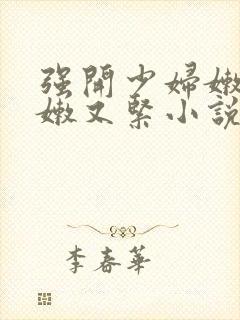 强開少婦嫩
嫩又緊小說
李春華